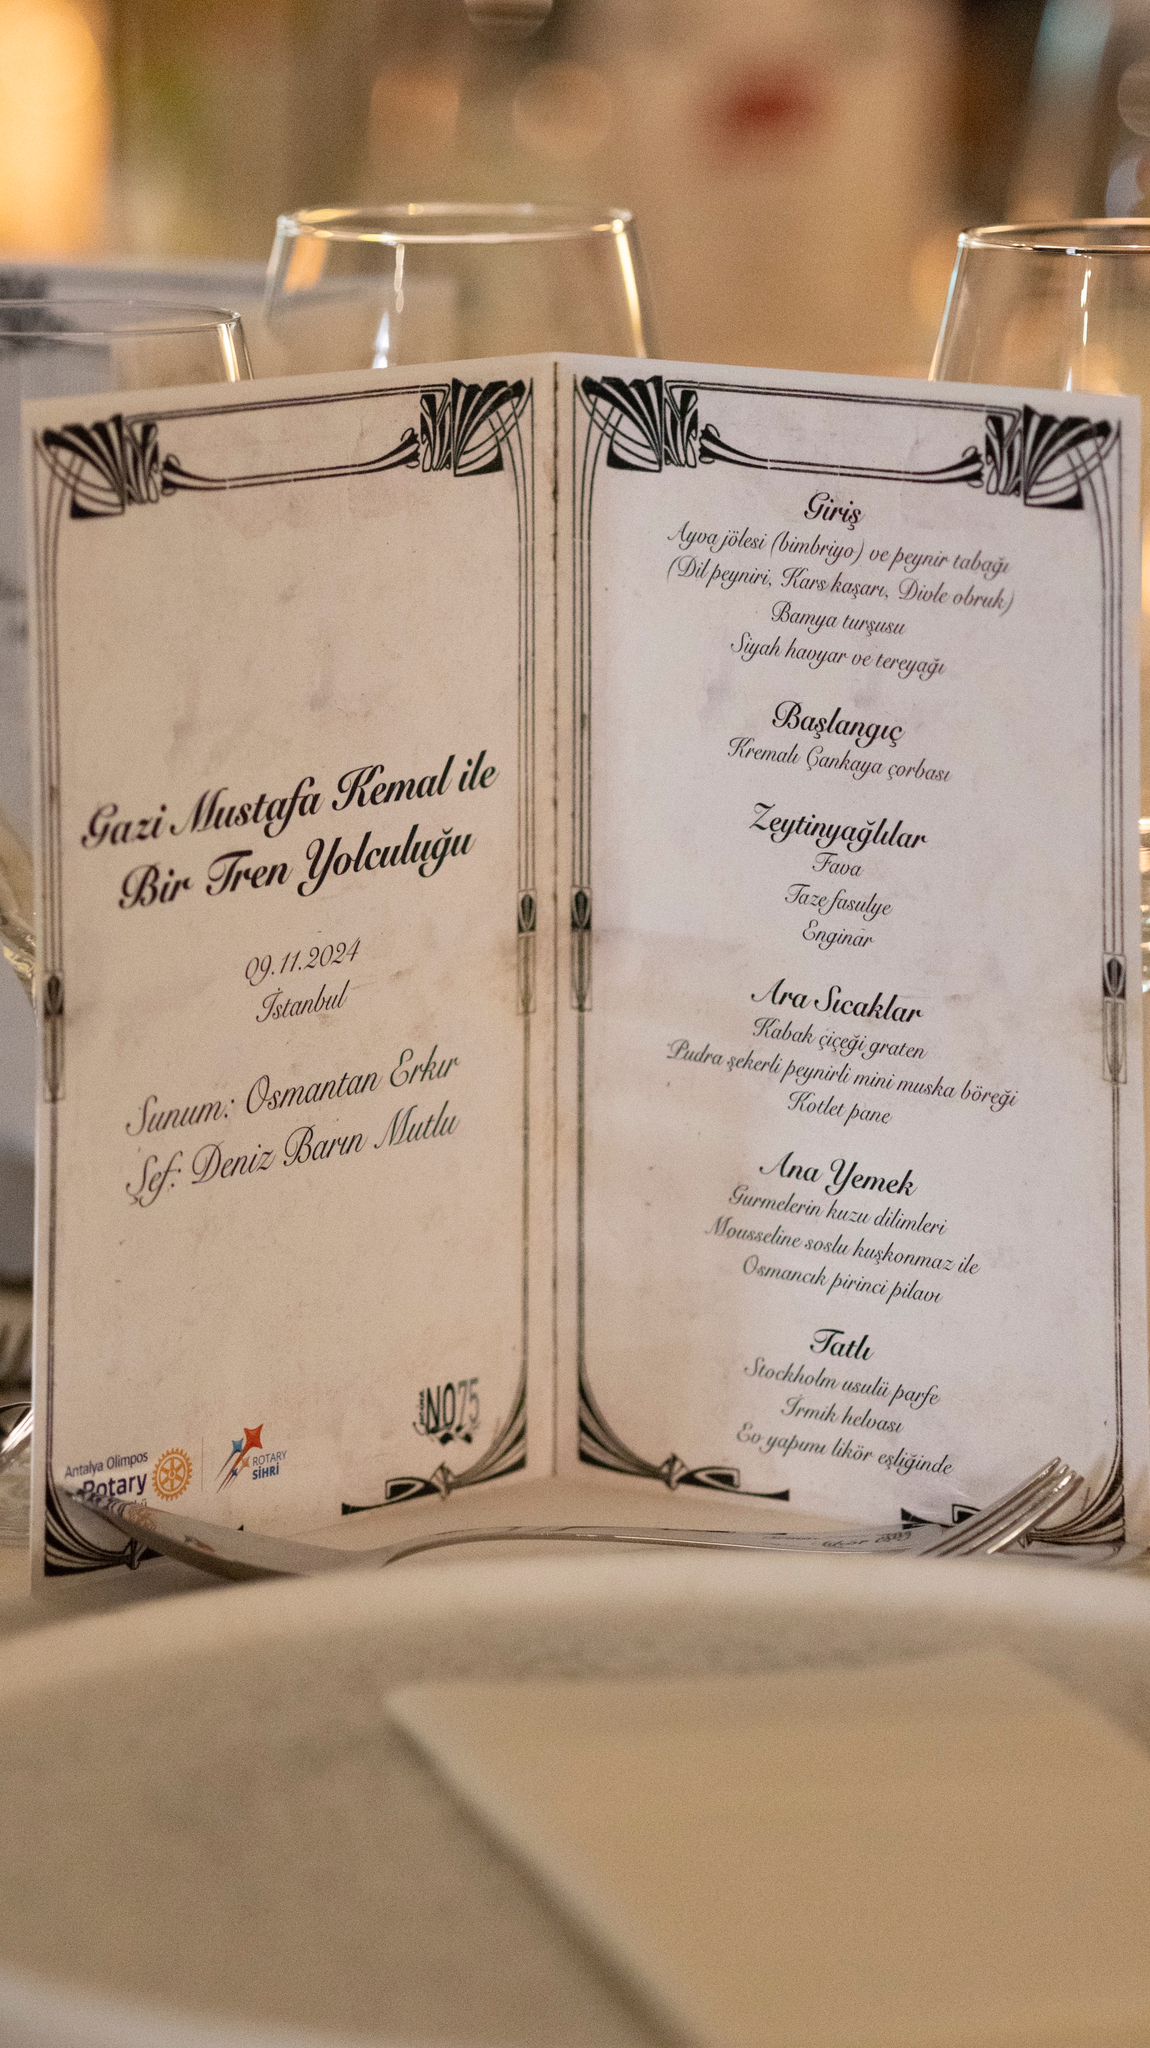 Gazi Mustafa Kemal ile
Bir Tren Yolculuğu
09.11.2024
İstanbul
Sunum: Osmantan Erkır
Şef: Deniz Barın Mutlu
NO75
Antalya Olimpos
Rotary
ROTARY
SİHRİ
Giriş
Ayva jölesi (bimbriyo) ve peynir tabağı
(Dil peyniri, Kars kaşarı, Divle obruk)
Bamya turşusu
Siyah havyar ve tereyağı
Başlangıç
Kremalı Çankaya çorbası
Zeytinyağlılar
Fava
Taze fasulye
Enginar
Ara Sıcaklar
Kabak çiçeği graten
Pudra şekerli peynirli mini muska böreği
Kotlet pane
Ana Yemek
Gurmelerin kuzu dilimleri
Mousseline soslu kuşkonmaz ile
Osmancık pirinci pilavı
Tatlı
Stockholm usulü parfe
İrmik helvası
Ev yapımı likör eşliğinde